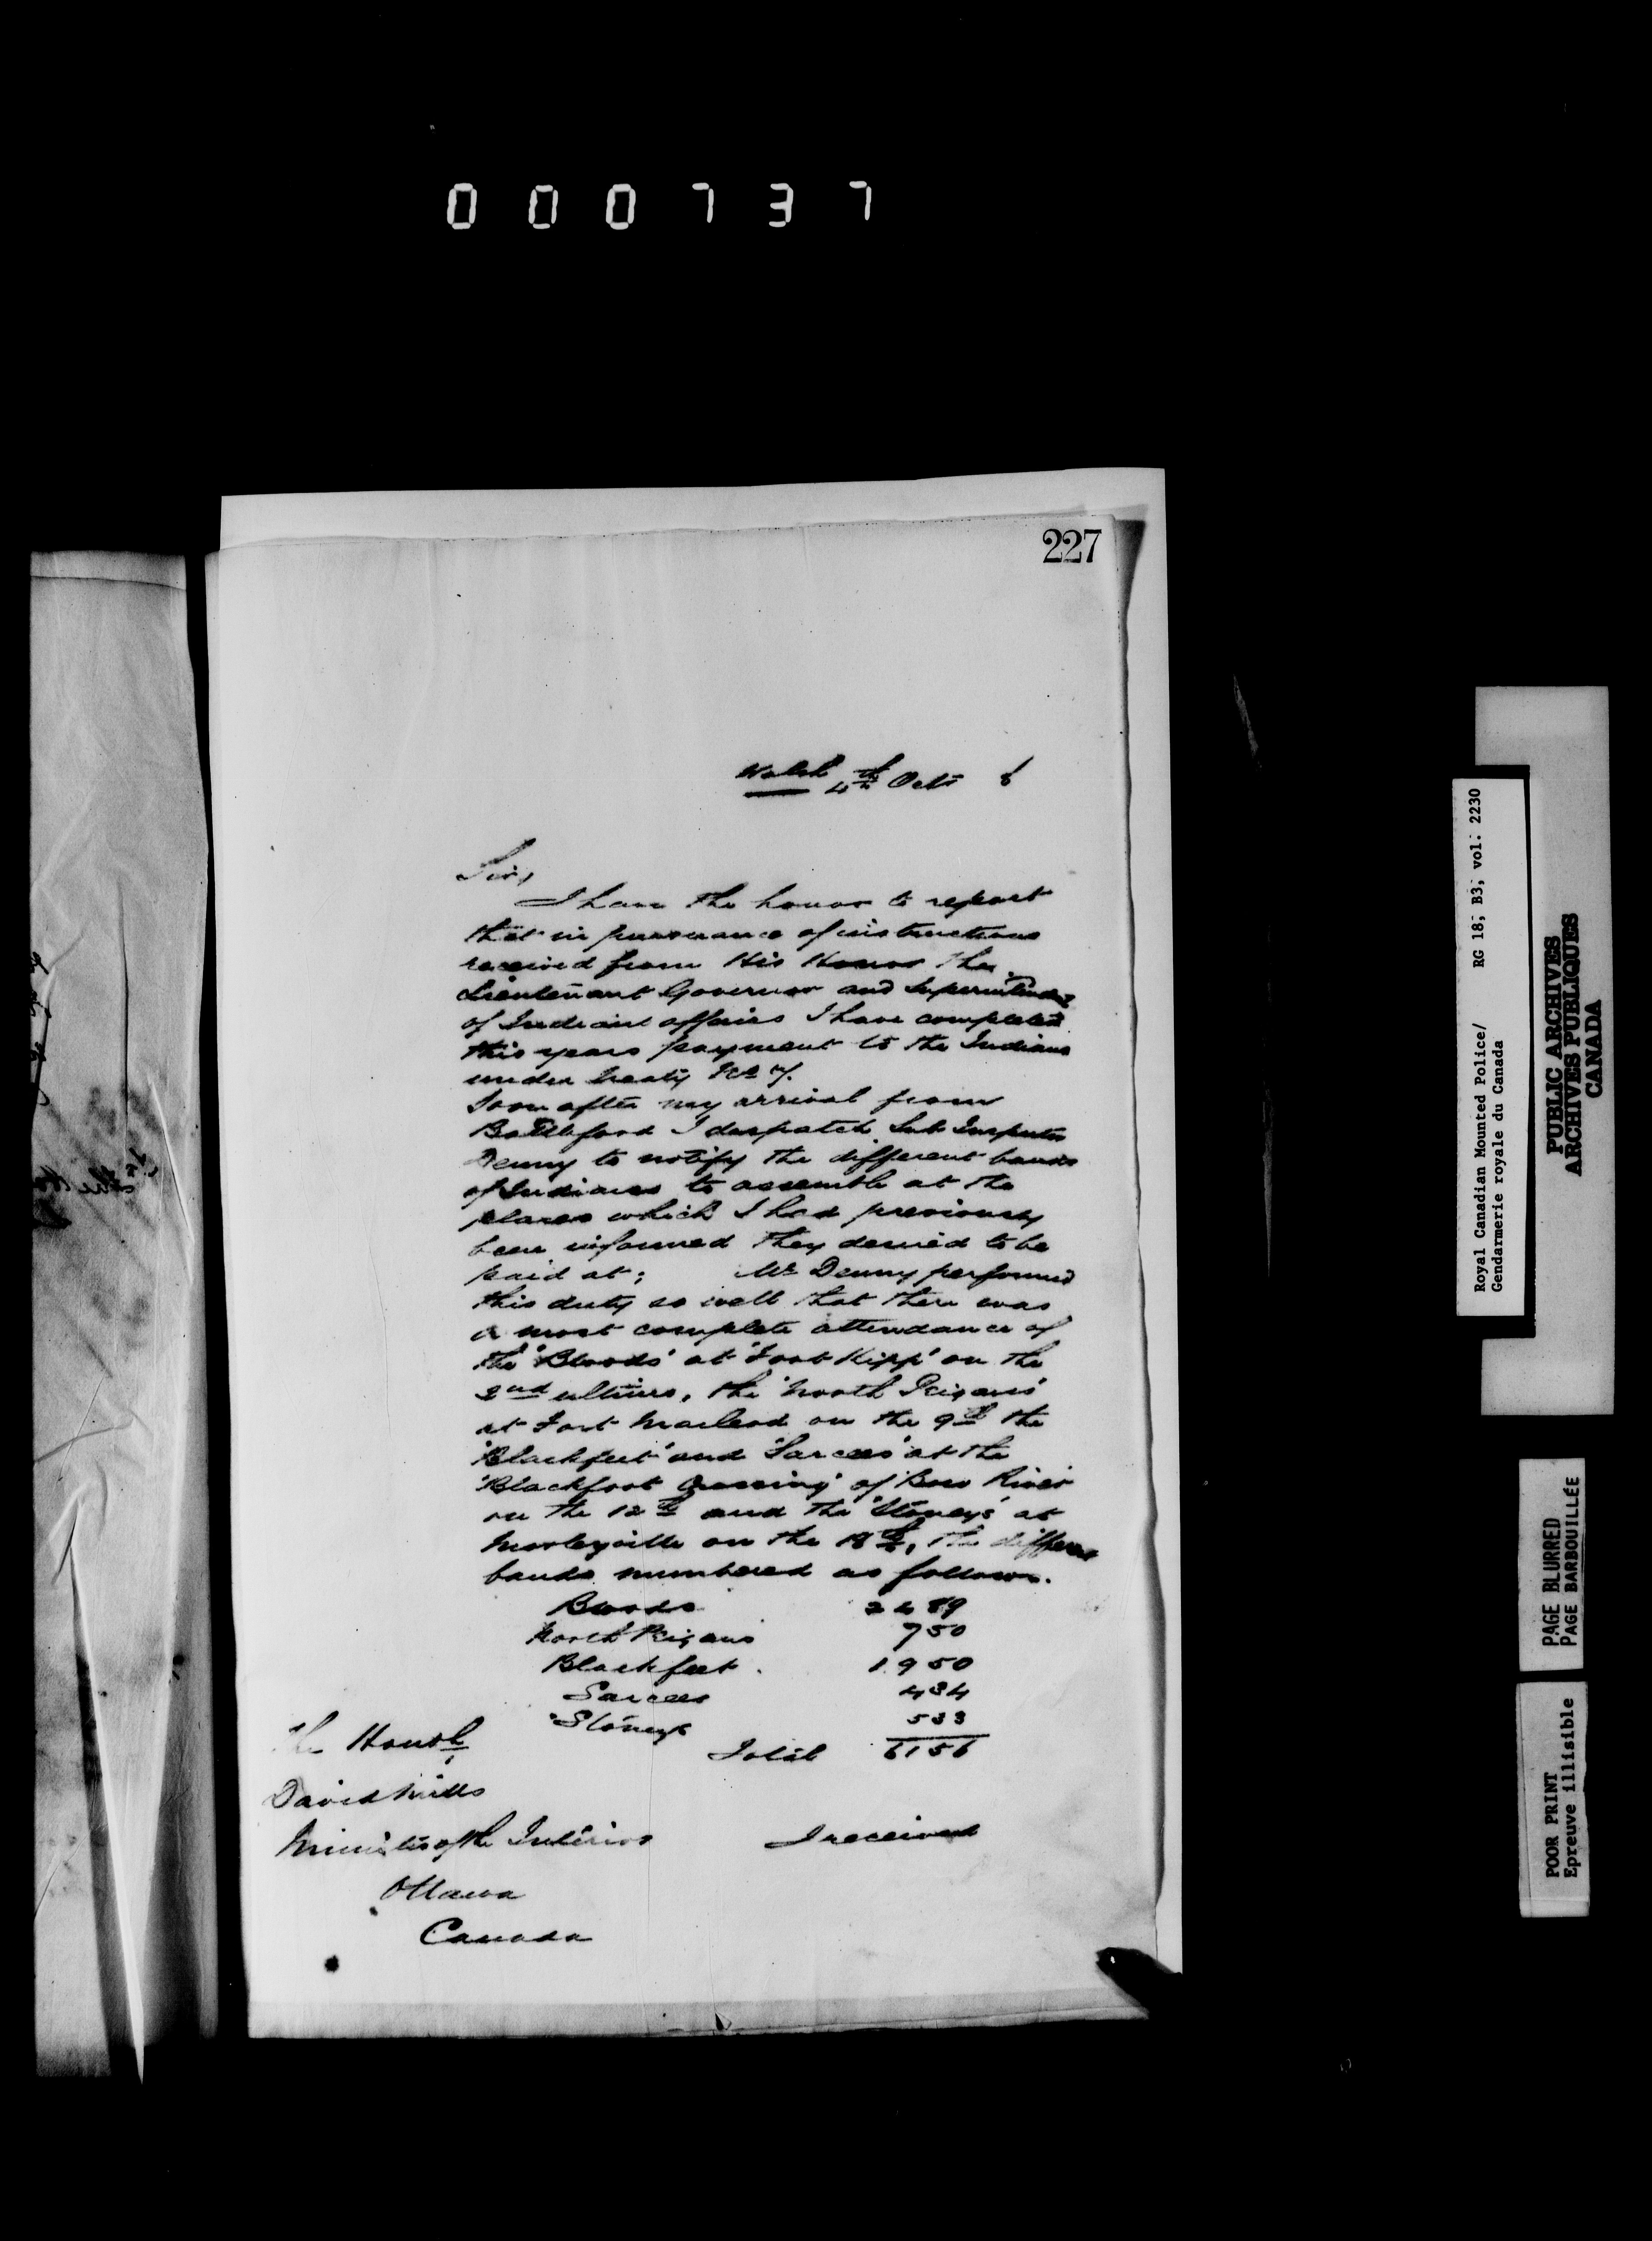 000737
227
Walsh 4th Octr 8
Sir,
I have the honor to report
that in pursuance of instructions
received from His Honor the
Lieutenant Governor and Superintendent
of Indian affairs I have completed
this years payment to the Indians
under treaty No 7.
Soon after my arrival from
Battleford I despatch Sub Inspector
Denny to notify the different bands
of Indians to assemble at the
places which I had previously
been informed they desired to be
paid at; Mr Denny performed
this duty so well that there was
a most complete attendance of
the "Bloods" at "Foot Kipp" on the
2nd ultimo, the "North Peigans"
at Fort Macleod on the 9th the
"Blackfeet" and "Sarcees" at the
"Blackfoot Crossing" of Bow River
on the 12th and the "Stoneys" at
Morleyville on the 18th, the different
bands numbered as follows.
Bloods 2489
North Peigans 750
Blackfeet. 1950
Sarcees 434
Stoneys 533
Total 6156
The Honble
David Mills
Minister of the Interior
Ottawa
Canada
I received
Royal Canadian Mounted Police/ RG 18, B3, vol. 2230
Gendarmerie royale du Canada
PUBLIC ARCHIVES
ARCHIVES PUBLIQUES
CANADA
PAGE BLURRED
PAGE BARBOUILLÉE
POOR PRINT
Epreuve illisible